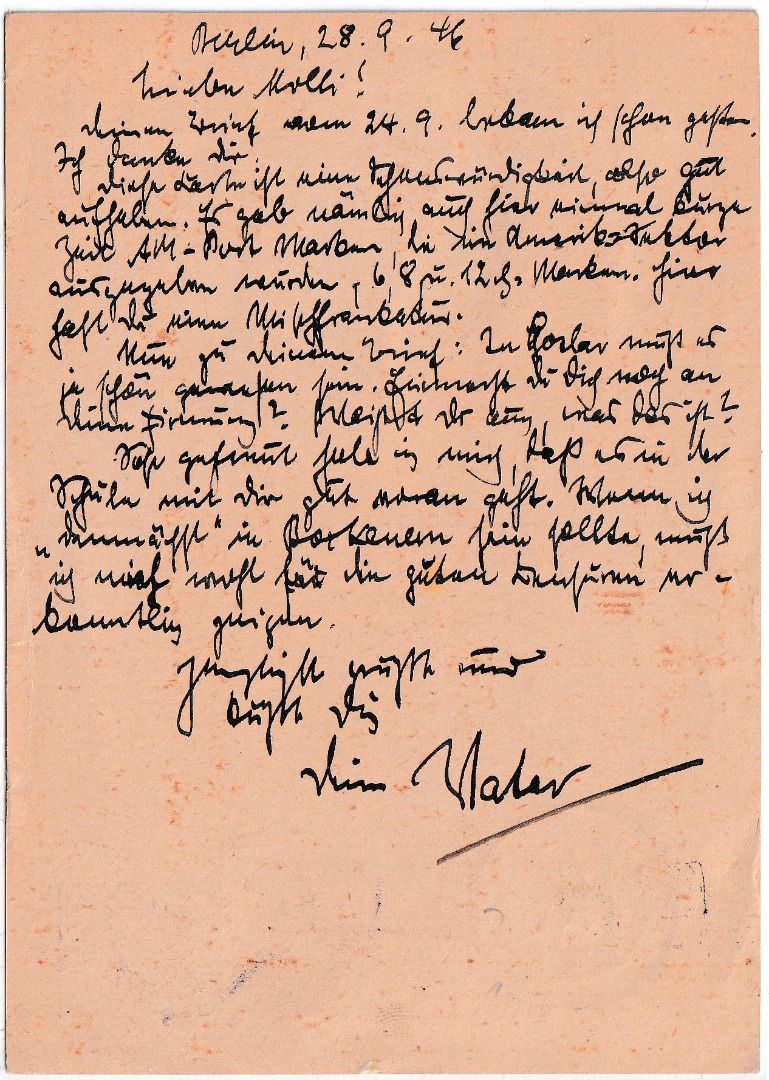 Berlin, 28. 9. 46
Lieber Molli!
Deinen Brief vom 24. 9. bekam ich schon gestern.
Ich danke Dir.
Diese Karte ist eine Sehenswürdigkeit, also gut
aufheben. Es gab nämlich auch hier einmal kurze
Zeit AM-Post Marken, die im Amerik. Sektor
ausgegeben wurden, 6, 8 u. 12 Marken. Hier
hast Du eine Mischfrankatur.
Nun zu Deinem Brief: In Goslar muß es
ja schön gewesen sein. Erinnerst Du Dich noch an
Deine Firmung? Weißt Du auch, was das ist?
Sehr gefreut habe ich mich, daß es in der
Schule mit Dir gut voran geht. Wenn ich
„demnächst“ in sein sollte, muß
ich mich wohl für die guten Zensuren er-
kenntlich zeigen.
Herzlichst grüßt und
küßt Dich
Dein Vater